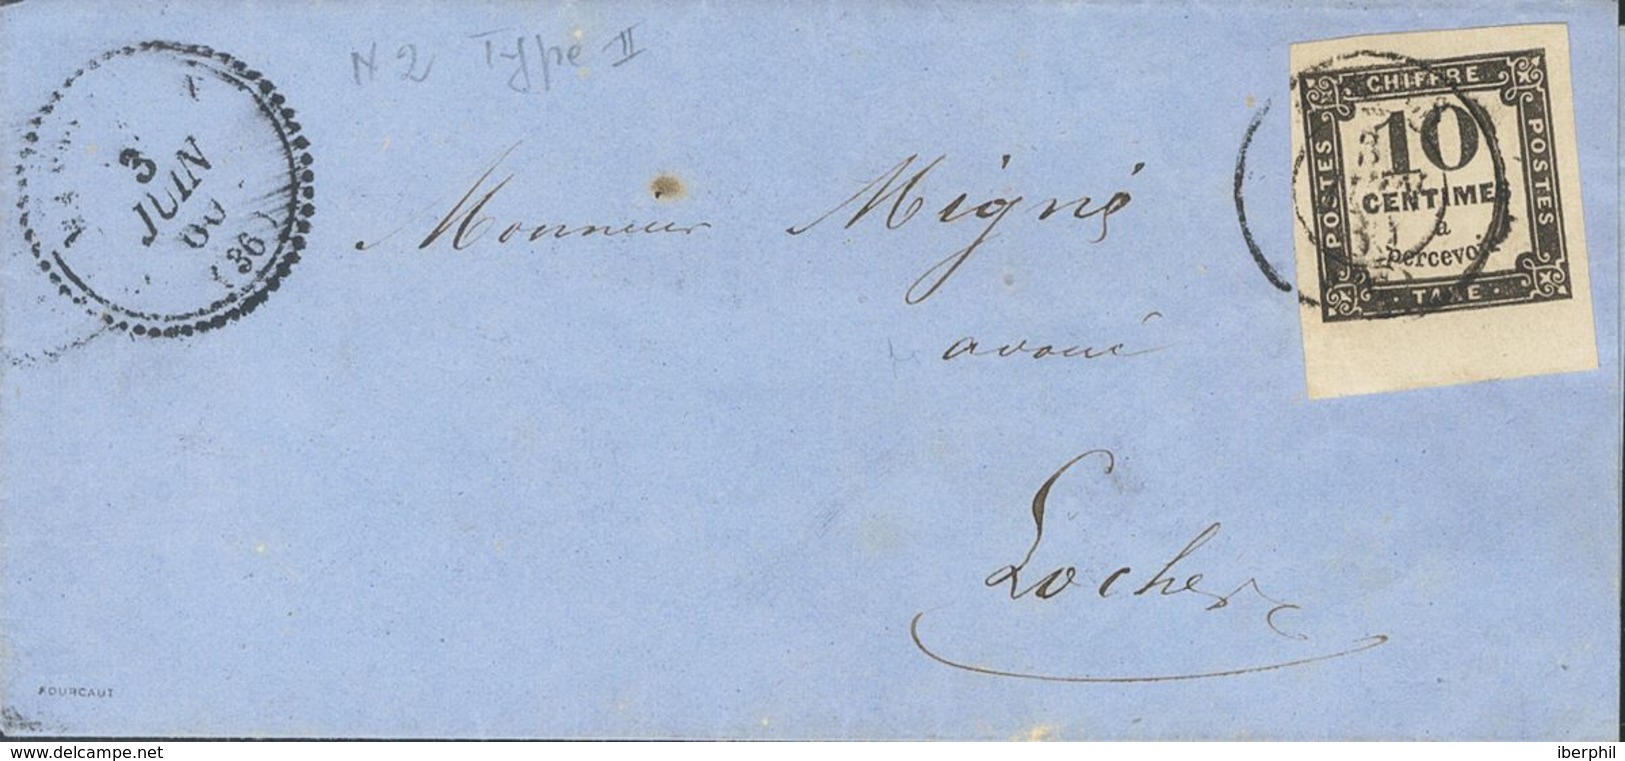 N 2 Type II
3
JUIN
60
(36)
CHIFFRE
10
CENTIMES
à
percevoir
TAXE
POSTES
POSTES
Monsieur Migné
avoué
Loches
FOURCAUT
www.delcampe.net
iberphil